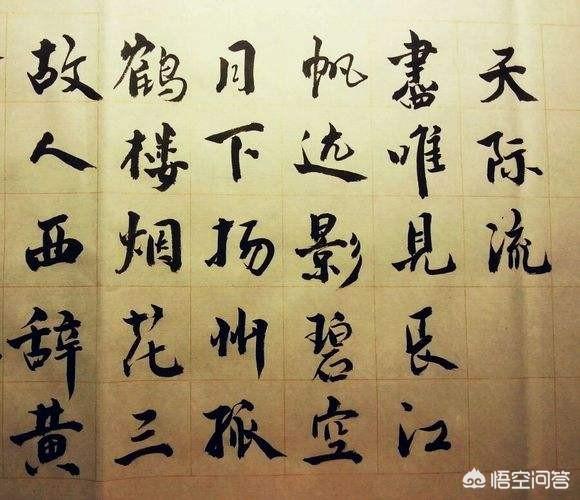 故人西辞黄
鶴楼烟花三
月下扬州孤
帆远影碧空
盡唯見長江
天际流
悟空问答